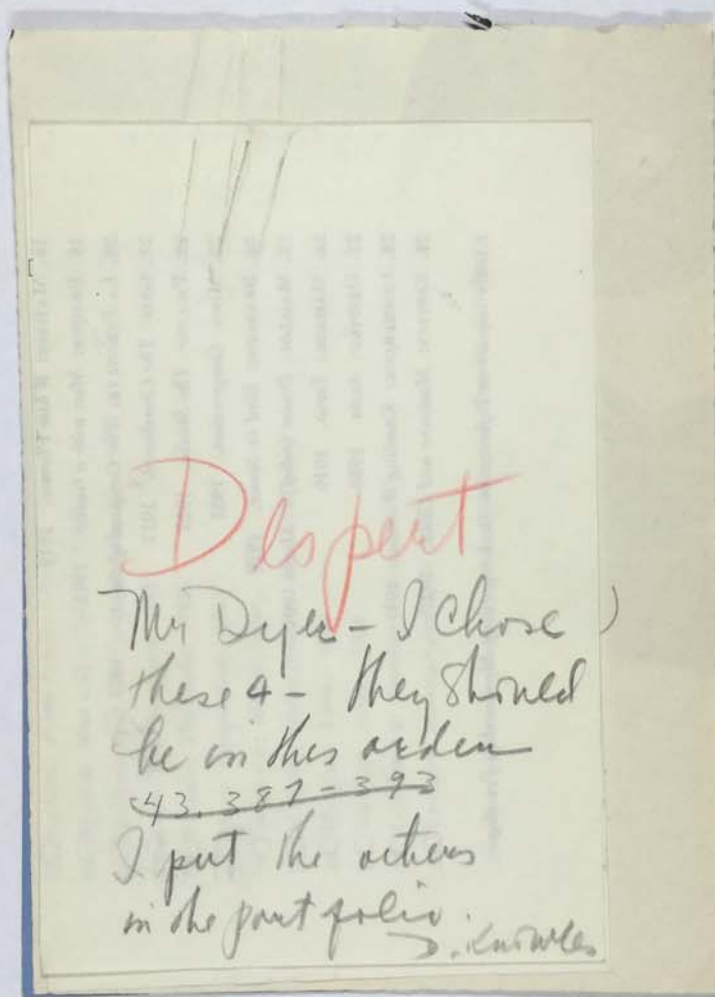 Despert
Mr Dyer - I chose
these 4 - they should
be in this order
43.387-393
I put the others
in the portfolio.
D. Knowles